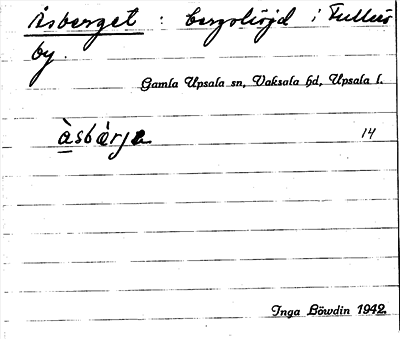 Åsberget : bergshöjd i Fullerö
by.
Gamla Upsala sn, Vaksala hd, Upsala l.
àsbàrje 14
Inga Löwdin 1942.